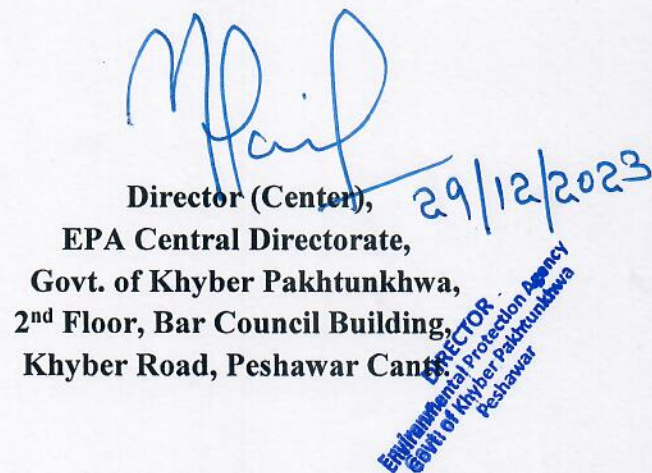 Director (Center),
29/12/2023
EPA Central Directorate,
Govt. of Khyber Pakhtunkhwa,
2nd Floor, Bar Council Building,
Khyber Road, Peshawar Cantt.
DIRECTOR
Environmental Protection Agency
Govt: of Khyber Pakhtunkhwa
Peshawar